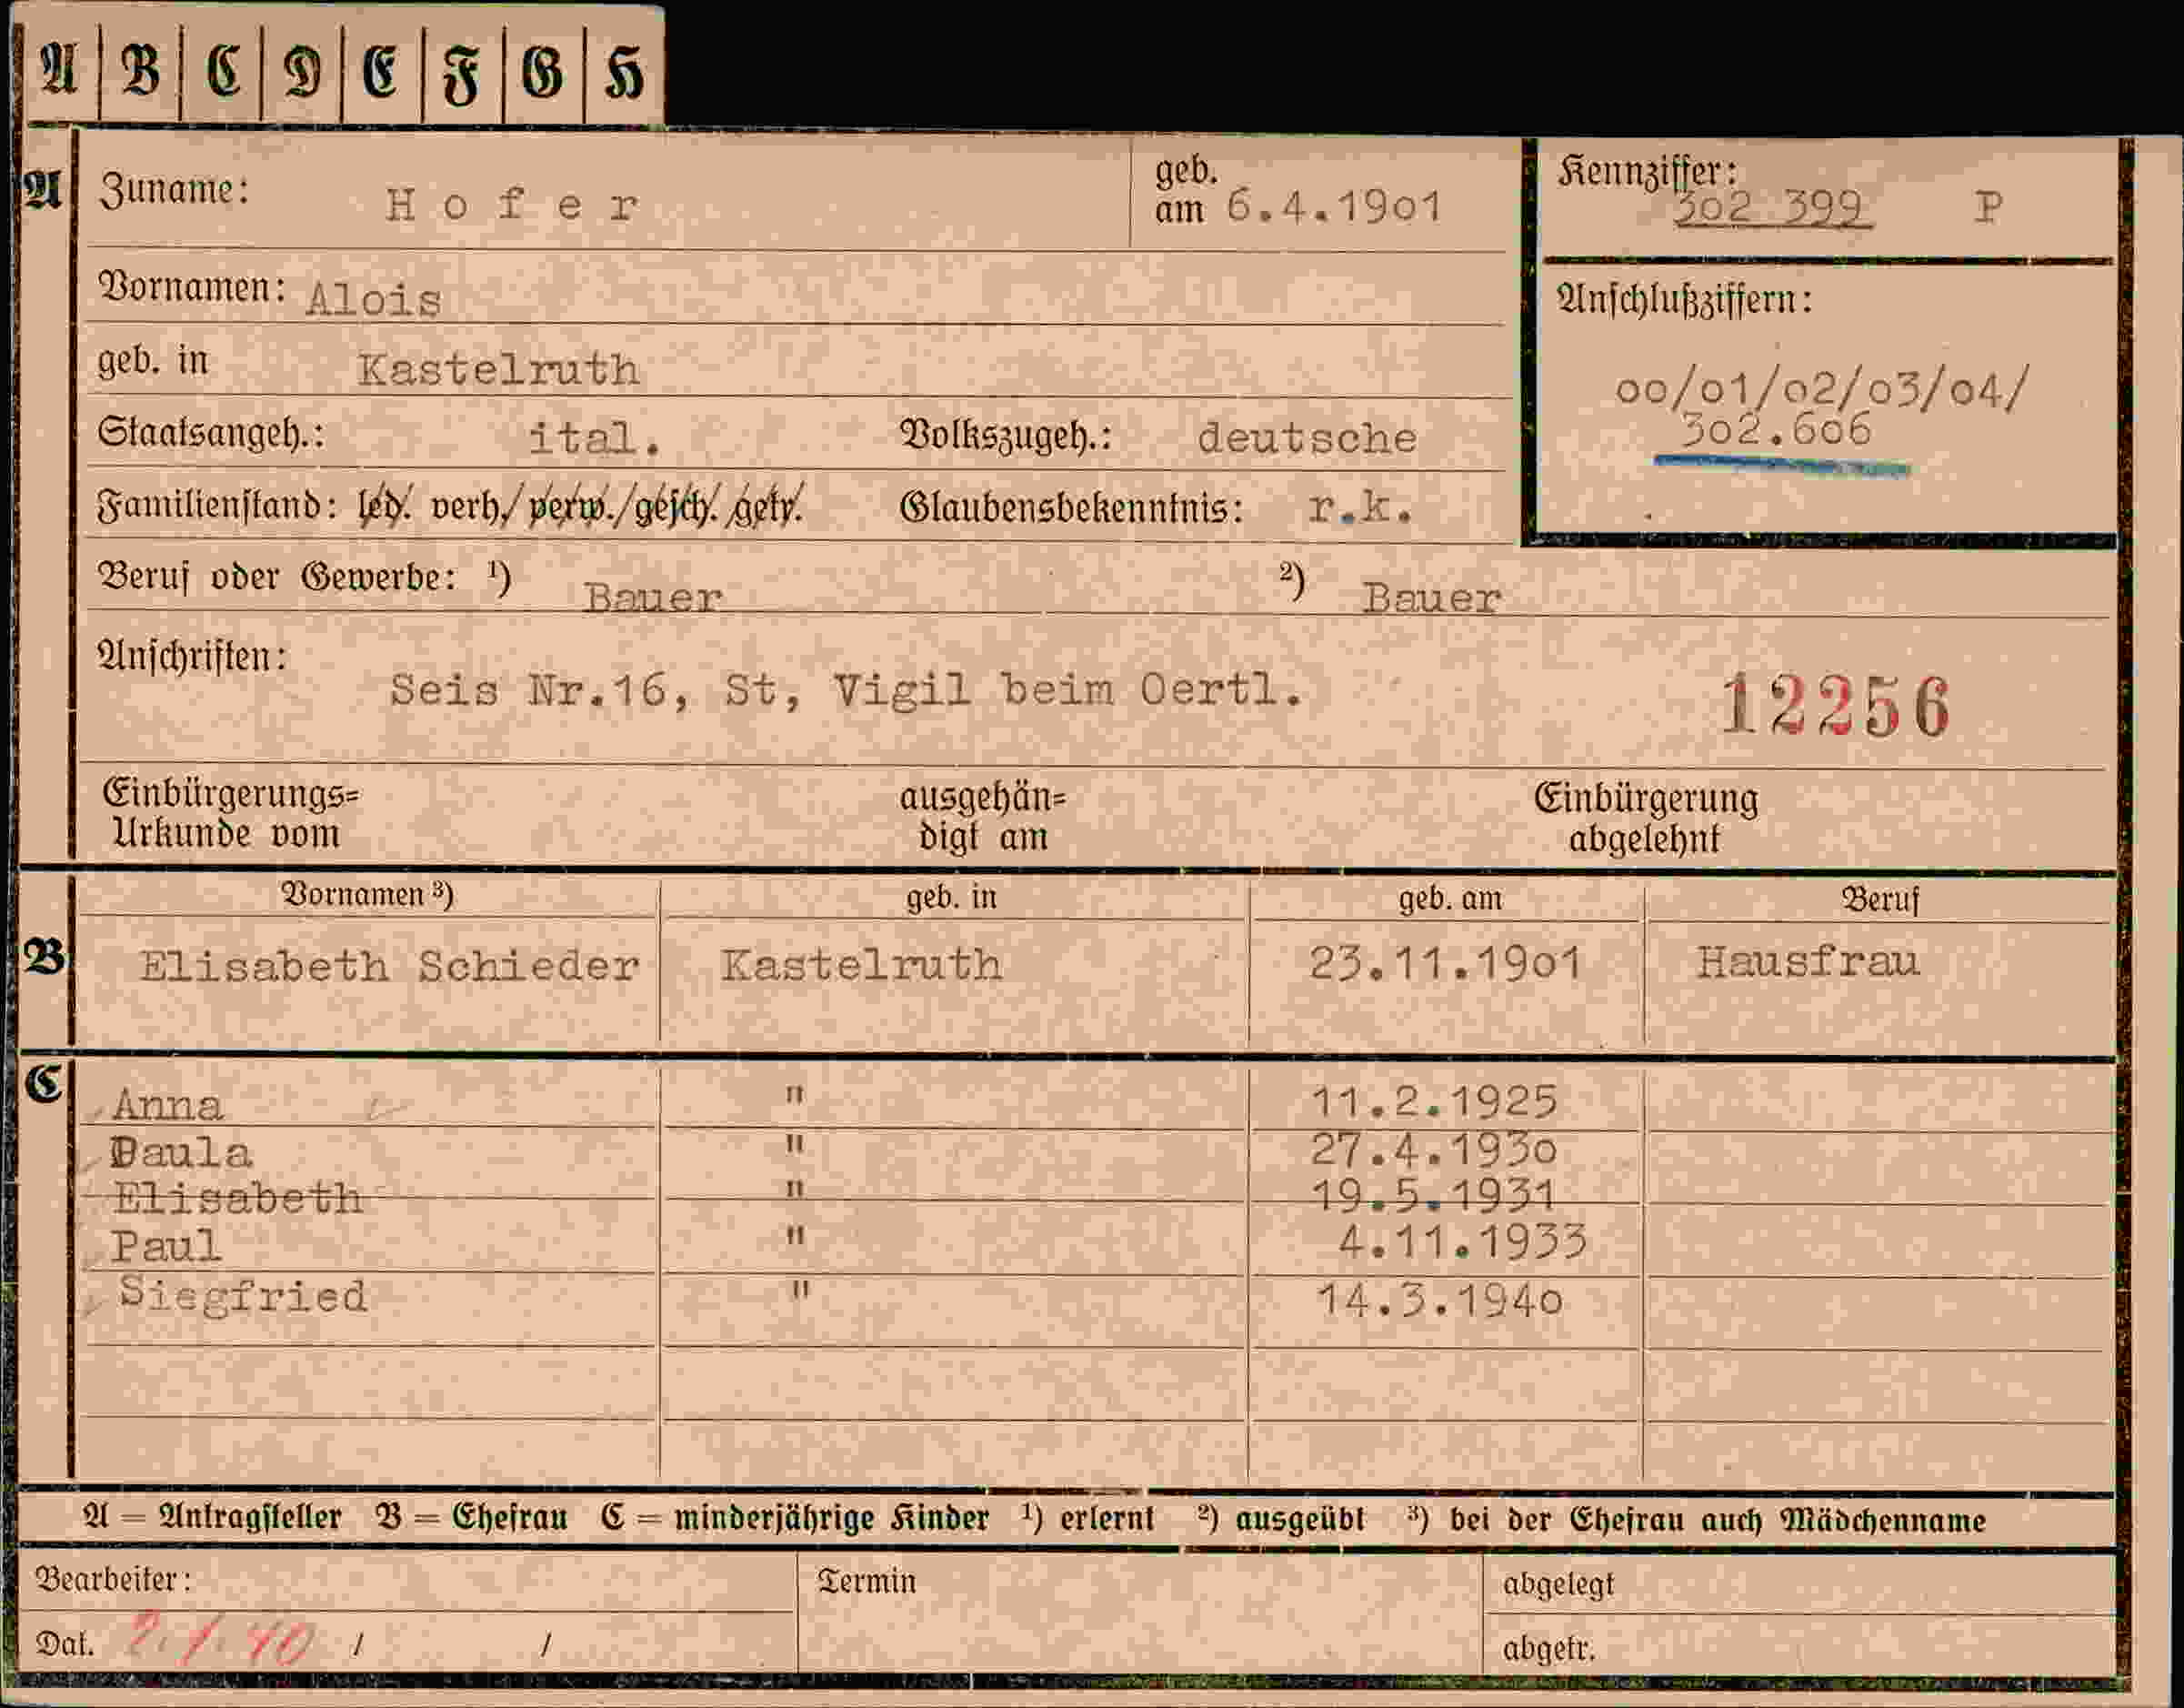 A B C D E F G H
A Zuname: Hofer geb. am 6.4.1901 Kennziffer: 302 399 P
Vornamen: Alois Anschlußziffern:
geb. in Kastelruth oo/o1/o2/o3/o4/
Staatsangeh.: ital. Volkszugeh.: deutsche 302.606
Familienstand: led. verh./ verw./gesch./getr. Glaubensbekenntnis: r.k.
Beruf oder Gewerbe: ¹) Bauer ²) Bauer
Anschriften: Seis Nr.16, St, Vigil beim Oertl. 12256
Einbürgerungs= ausgehän= Einbürgerung
Urkunde vom digt am abgelehnt
Vornamen ³) geb. in geb. am Beruf
B Elisabeth Schieder Kastelruth 23.11.1901 Hausfrau
C Anna " 11.2.1925
Paula " 27.4.1930
Elisabeth " 19.5.1931
Paul " 4.11.1933
Siegfried " 14.3.1940
A = Antragsteller B = Ehefrau C = minderjährige Kinder ¹) erlernt ²) ausgeübt ³) bei der Ehefrau auch Mädchenname
Bearbeiter: Termin abgelegt
Dat. / / abgetr.